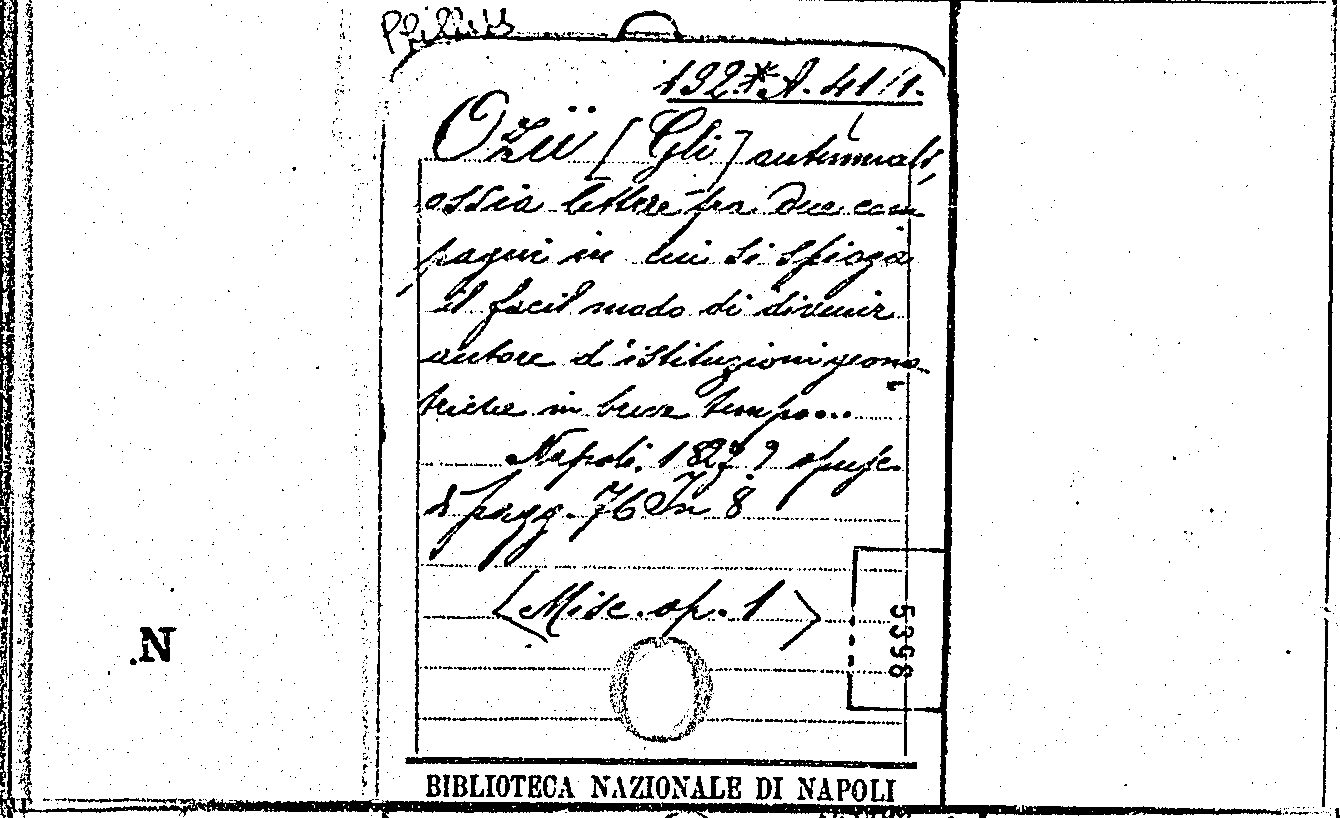 192*A. 41/1.
Ozii [Gli] autunnali,
ossia lettere fra due com
pagni in cui si spiega
il facil modo di divenir
autore d'istituzioni geome
triche in breve tempo...
Napoli, 1827 ? opusc.
di pagg. 76 In 8
<Misc. op. 1>
5398
.N
BIBLIOTECA NAZIONALE DI NAPOLI